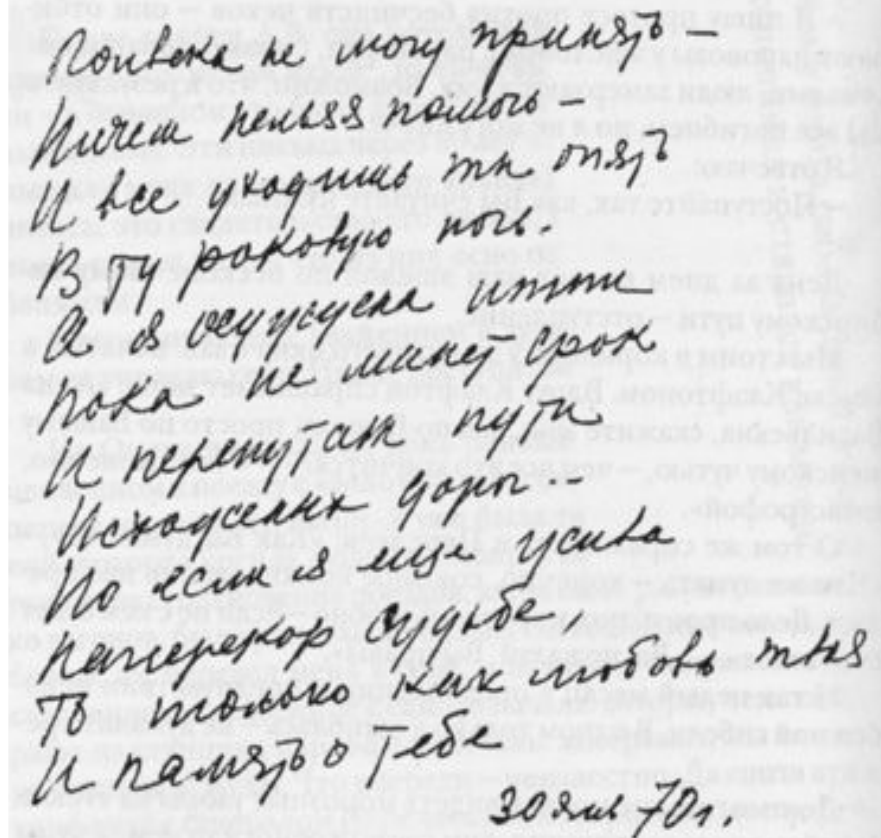 Полвека не могу принять –
Ничем нельзя помочь –
И все уходишь ты опять
В ту роковую ночь.
А я осуждена итти
Пока не минет срок
И перепутаны пути
Исхоженных дорог --
Но если я еще жива
Наперекор судьбе
То только как любовь твоя
И память о тебе
30 янв 70 г.